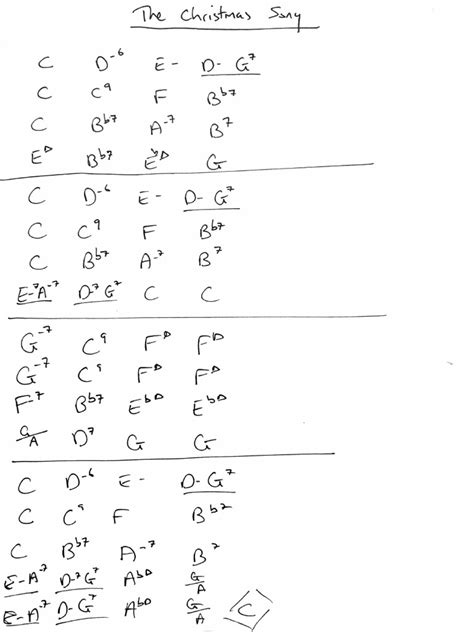 The Christmas Song
C D-6 E- D- G7
C C9 F Bb7
C Bb7 A-7 B7
E△ Bb7 Eb△ G
C D-6 E- D- G7
C C9 F Bb7
C Bb7 A-7 B7
E-7 A-7 D-7 G7 C C
G-7 C9 F△ F△
G-7 C9 F△ F△
F-7 Bb7 Eb△ Eb△
G/A D7 G G
C D-6 E- D- G7
C C9 F Bb7
C Bb7 A-7 B7
E- A-7 D-7 G7 Ab△ G/A
E- A-7 D- G7 Ab△ G/A C